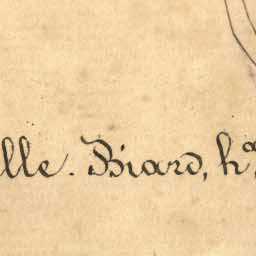 lle. Biard, h^a,